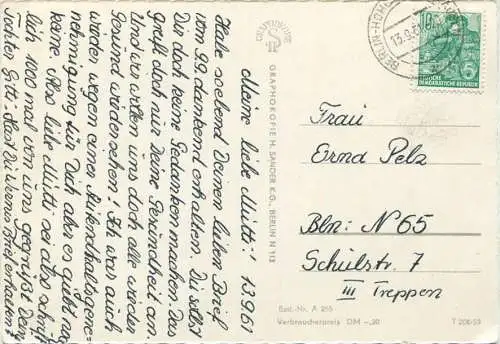 Meine liebe Mutti! 13.9.61
Habe soebend Deinen lieben Brief
vom 2.9. dankend erhalten. Du sollst
Dir doch keine Gedanken machen. Das
greift doch nur Deine Gesundheit an
Und wir werden uns doch alle wieder
Gesund wiedersehen! Ich war auch
wegen einer Aufenthaltsgene=
nehmigung für Dich aber es gibt
keine. Also liebe Mutti sei
lich 1000 mal von uns gegrüßt Deine
Tochter Gitti. Hast Du Brief erhalten?
GRAPHOKOPIE
GRAPHOKOPIE H. SANDER K.G., BERLIN N 113
BERLIN
13.9.61
10
DEUTSCHE
DEMOKRATISCHE REPUBLIK
Frau
Erna Pelz
Bln: N 65
Schulstr. 7
III Treppen
Best.-Nr. A 255
Verbraucherpreis DM -,20
T 206/59